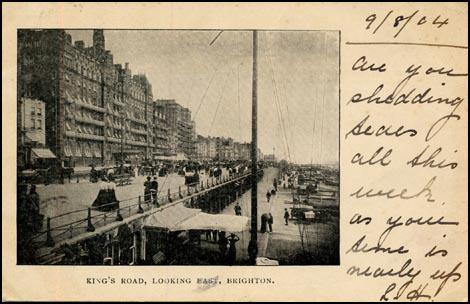 9/8/04
Are you
shedding
tears
all this
week
as your
time is
nearly up
KING'S ROAD, LOOKING EAST, BRIGHTON.